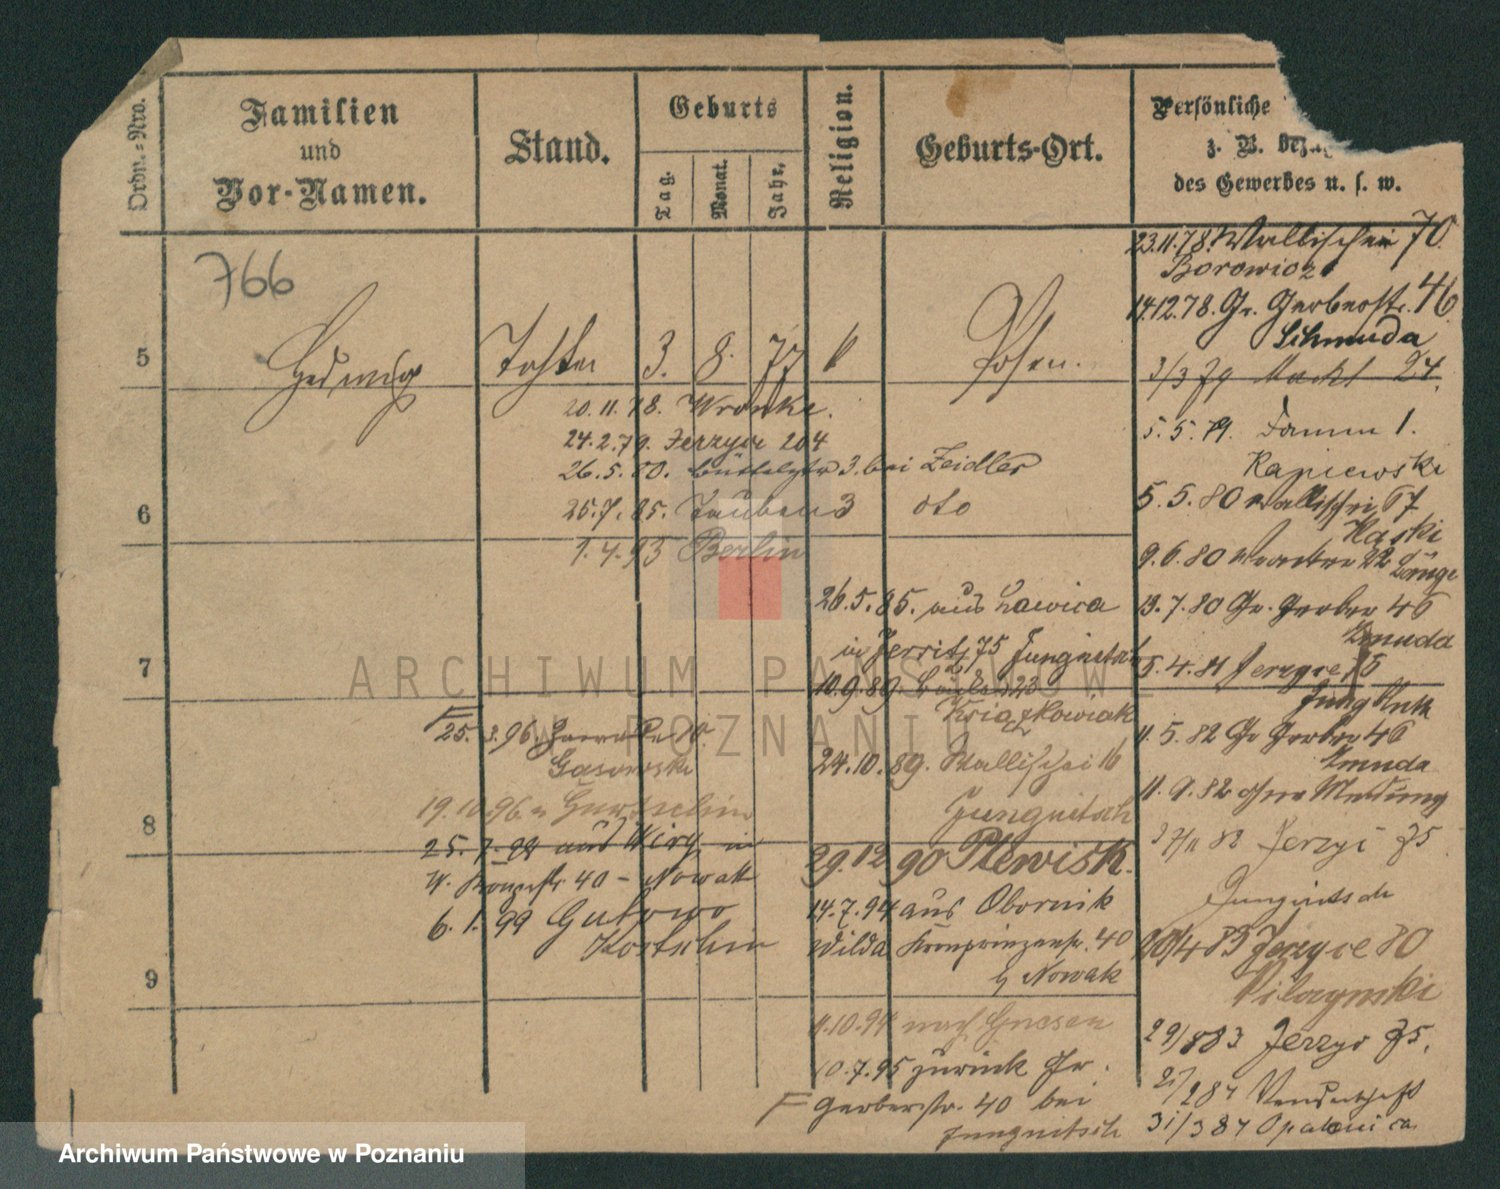 Ordn.=Nro.
Familien
und
Vor-Namen.
Stand.
Geburts
Tag.
Monat.
Jahr.
Religion.
Geburts-Ort.
Persönliche
z. B. bezü
des Gewerbes u. s. w.
766
5
Hedwig Tochter 3. 8. 77 k Posen.
20.11.78. Wronke.
24.2.79. Jerzyce 204
26.5.80. Büttelstr 3. bei Zeidler
6
25.7.85. Tauben 3 oto
1.4.93 Berlin
7
8
9
26.5.85. aus Lawica
in Jersitz 75 Jungnitsch
10.9.89. 23
Książkowiak
24.10.89. Wallischei 16
Jungnitsch
29.12 90 Plewisk.
14.7.94 aus Obornik
Wilda Kronprinzenstr. 40
b Nowak
11.10.94 nach Gnesen
10.7.95 zurück Gr.
Gerberstr. 40 bei
Jungnitsch
25.3.96.
Gasowski
19.10.96. n Gurtschin
25.7.98 aus Wiry in
W. 40 - Nowak
6.1.99 Gutowo
Kostschin
23.11.78. Wallischei 70
Borowicz
14.12.78. Gr. Gerberstr. 46
Schmuda
3/3 79 Markt 24.
5.5.79. Damm 1.
Rapiewski
5.5.80 Wallischei 67
Kaski
9.6.80 22 Lange
13.7.80 Gr. Gerber 46
Zmuda
5.4.81 Jerzyce 75
Jungnitsch
11.5.82 Gr Gerber 46
Zmuda
11.9.82 ohne Meldung
82 Jerzyc 75
Jungnitsch
20/4 83 Jerzyce 80
Pilczynski
29/8 83 Jerzyc 75.
2/2 84 Wanderschaft
31/3 84 Opalenica
ARCHIWUM PAŃSTWOWE
W POZNANIU
Archiwum Państwowe w Poznaniu